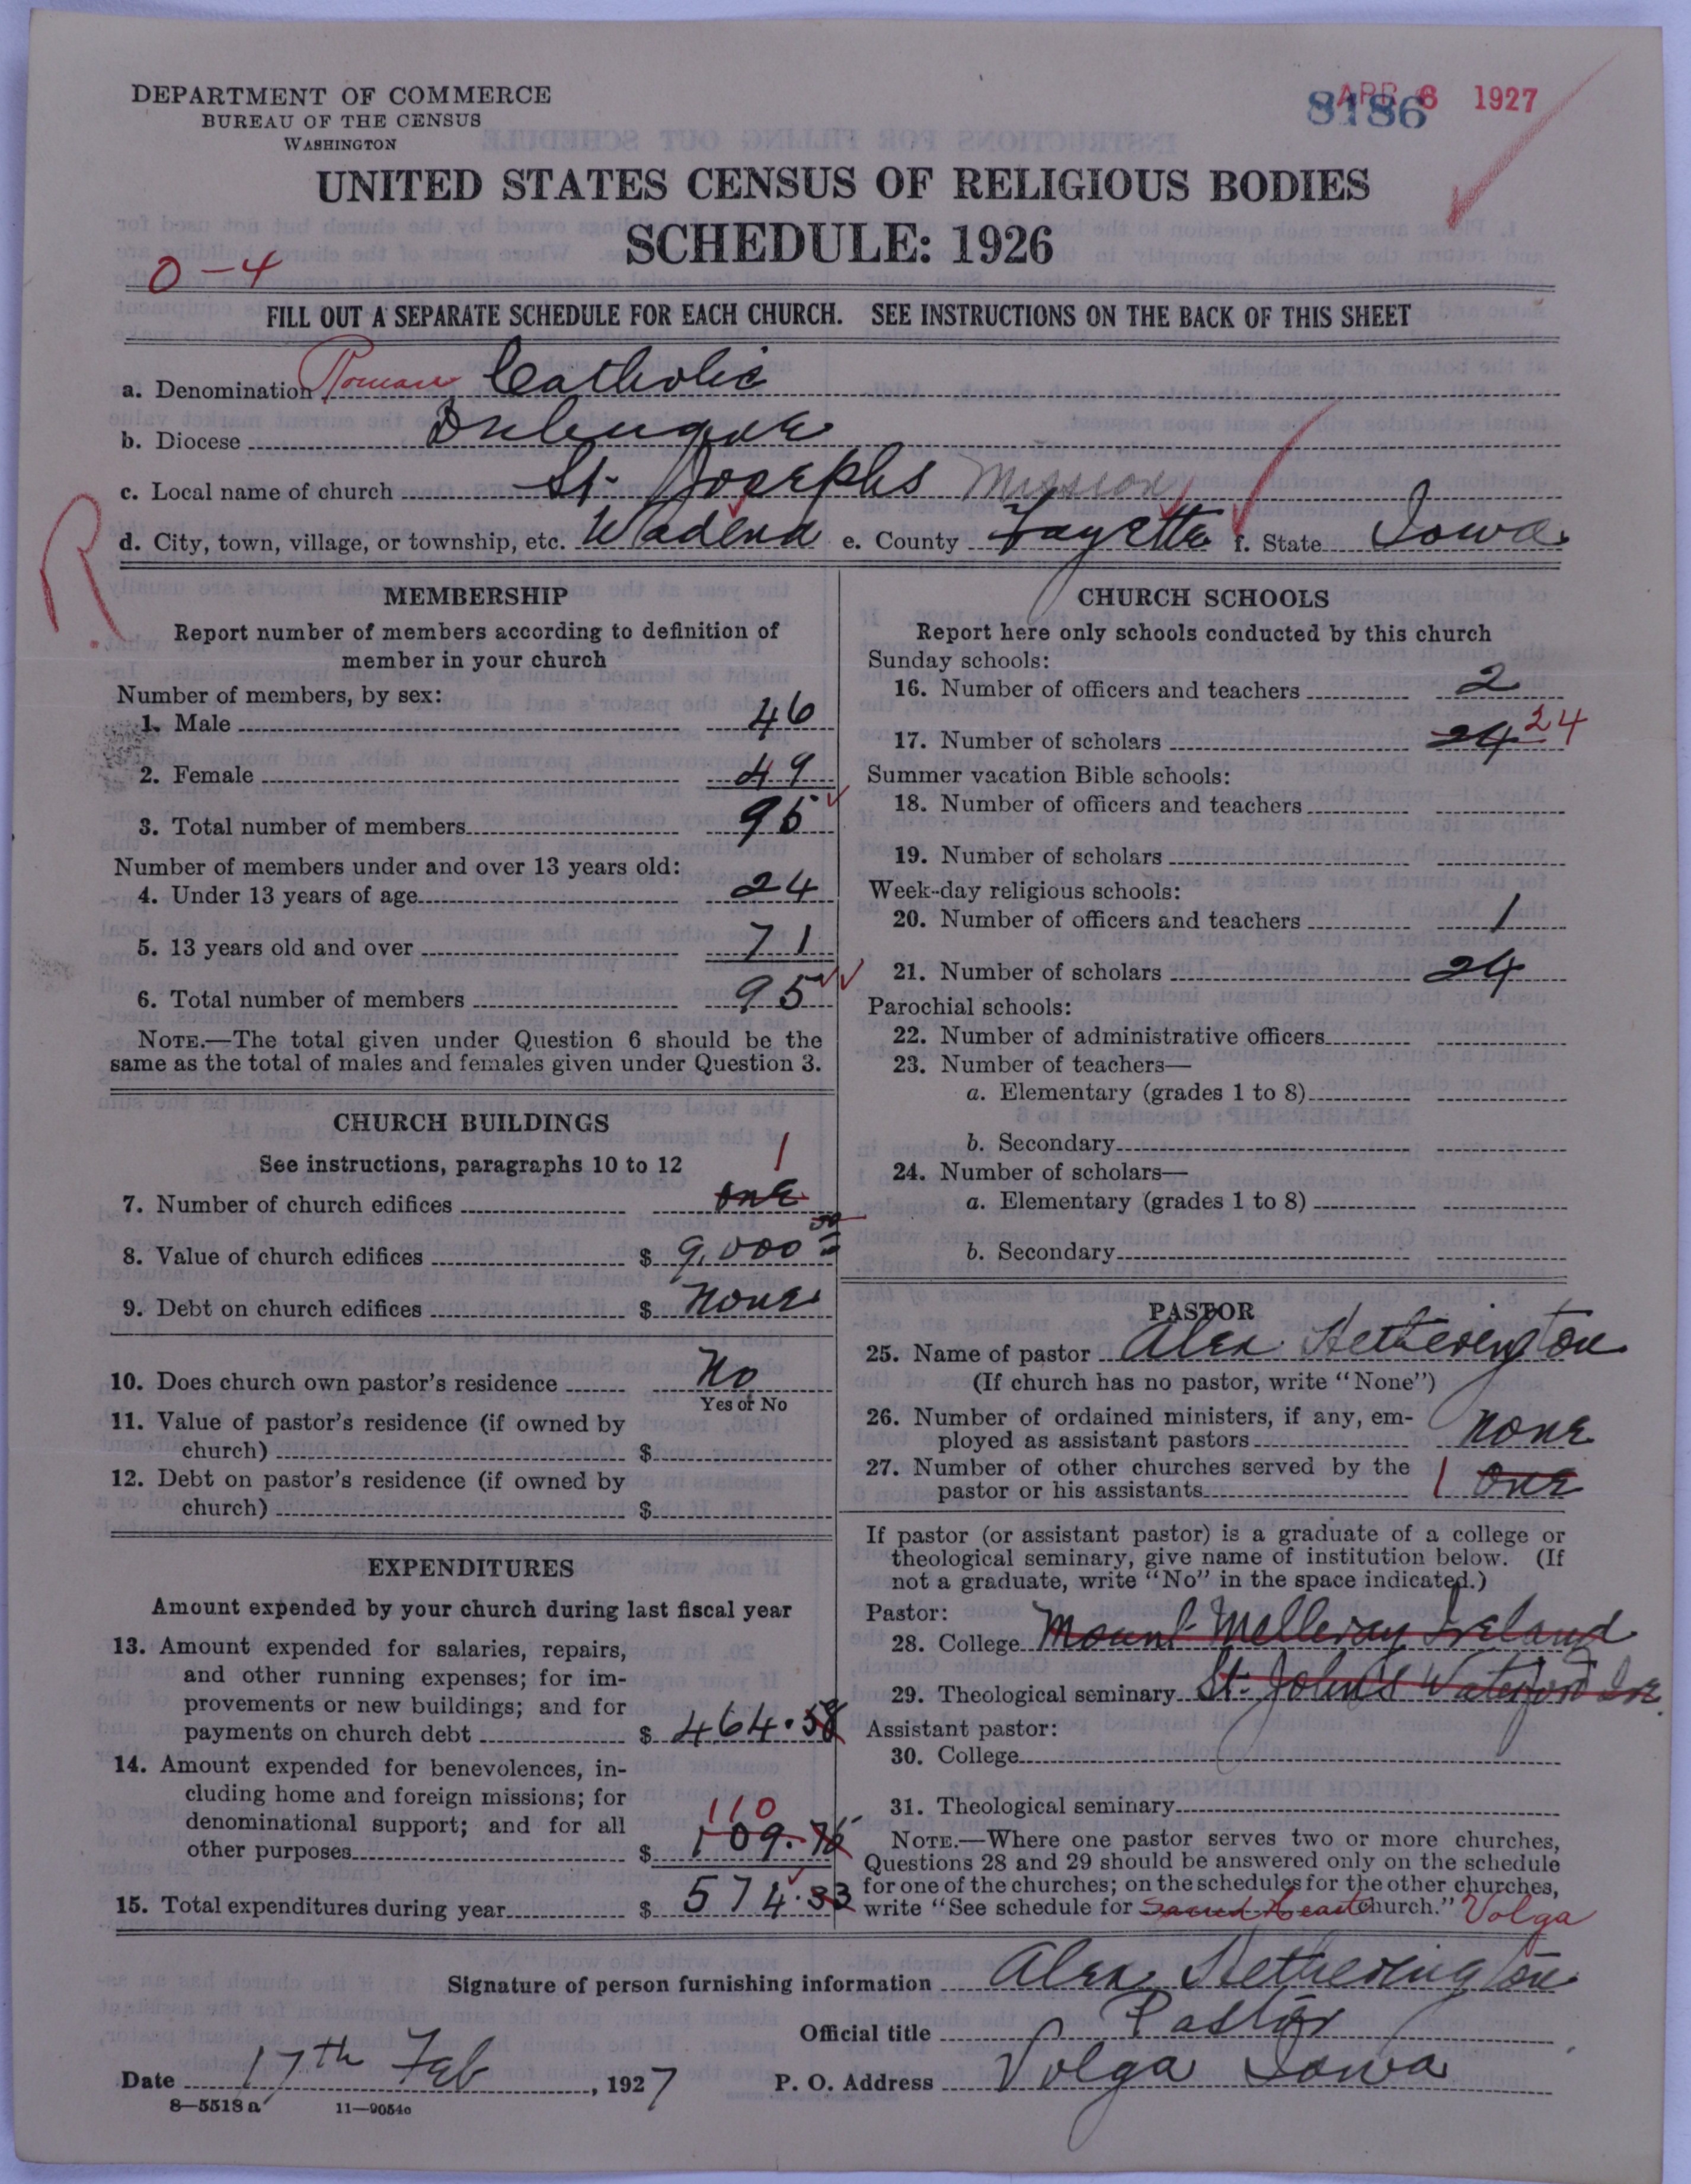 DEPARTMENT OF COMMERCE
BUREAU OF THE CENSUS
WASHINGTON
8186
APR 6 1927
UNITED STATES CENSUS OF RELIGIOUS BODIES
SCHEDULE: 1926
0-4
FILL OUT A SEPARATE SCHEDULE FOR EACH CHURCH. SEE INSTRUCTIONS ON THE BACK OF THIS SHEET
a. Denomination Roman Catholic
b. Diocese Dubuque
c. Local name of church St. Josephs Mission
R
d. City, town, village, or township, etc. Wadena e. County Fayette f. State Iowa
MEMBERSHIP
Report number of members according to definition of
member in your church
Number of members, by sex:
1. Male 46
2. Female 49
3. Total number of members 95
Number of members under and over 13 years old:
4. Under 13 years of age 24
5. 13 years old and over 71
6. Total number of members 95
NOTE.—The total given under Question 6 should be the
same as the total of males and females given under Question 3.
CHURCH BUILDINGS
See instructions, paragraphs 10 to 12
1
7. Number of church edifices one
8. Value of church edifices $ 9,000
9. Debt on church edifices $ none
10. Does church own pastor's residence No
Yes or No
11. Value of pastor's residence (if owned by
church) $
12. Debt on pastor's residence (if owned by
church) $
EXPENDITURES
Amount expended by your church during last fiscal year
13. Amount expended for salaries, repairs,
and other running expenses; for im-
provements or new buildings; and for
payments on church debt $ 464.58
14. Amount expended for benevolences, in-
cluding home and foreign missions; for
denominational support; and for all 110
other purposes $ 109.75
15. Total expenditures during year $ 574.33
CHURCH SCHOOLS
Report here only schools conducted by this church
Sunday schools:
16. Number of officers and teachers 2
17. Number of scholars 24 24
Summer vacation Bible schools:
18. Number of officers and teachers
19. Number of scholars
Week-day religious schools:
20. Number of officers and teachers 1
21. Number of scholars 24
Parochial schools:
22. Number of administrative officers
23. Number of teachers—
a. Elementary (grades 1 to 8)
b. Secondary
24. Number of scholars—
a. Elementary (grades 1 to 8)
b. Secondary
PASTOR
25. Name of pastor Alex Hetherington
(If church has no pastor, write "None")
26. Number of ordained ministers, if any, em-
ployed as assistant pastors none
27. Number of other churches served by the
pastor or his assistants 1 one
If pastor (or assistant pastor) is a graduate of a college or
theological seminary, give name of institution below. (If
not a graduate, write "No" in the space indicated.)
Pastor:
28. College Mount Melleray Ireland
29. Theological seminary St. John's Waterford Ire.
Assistant pastor:
30. College
31. Theological seminary
NOTE.—Where one pastor serves two or more churches,
Questions 28 and 29 should be answered only on the schedule
for one of the churches; on the schedules for the other churches,
write "See schedule for Sacred Heart church." Volga
Signature of person furnishing information Alex Hetherington
Official title Pastor
Date 17th Feb, 1927 P. O. Address Volga Iowa
8—5518 a 11—9054c